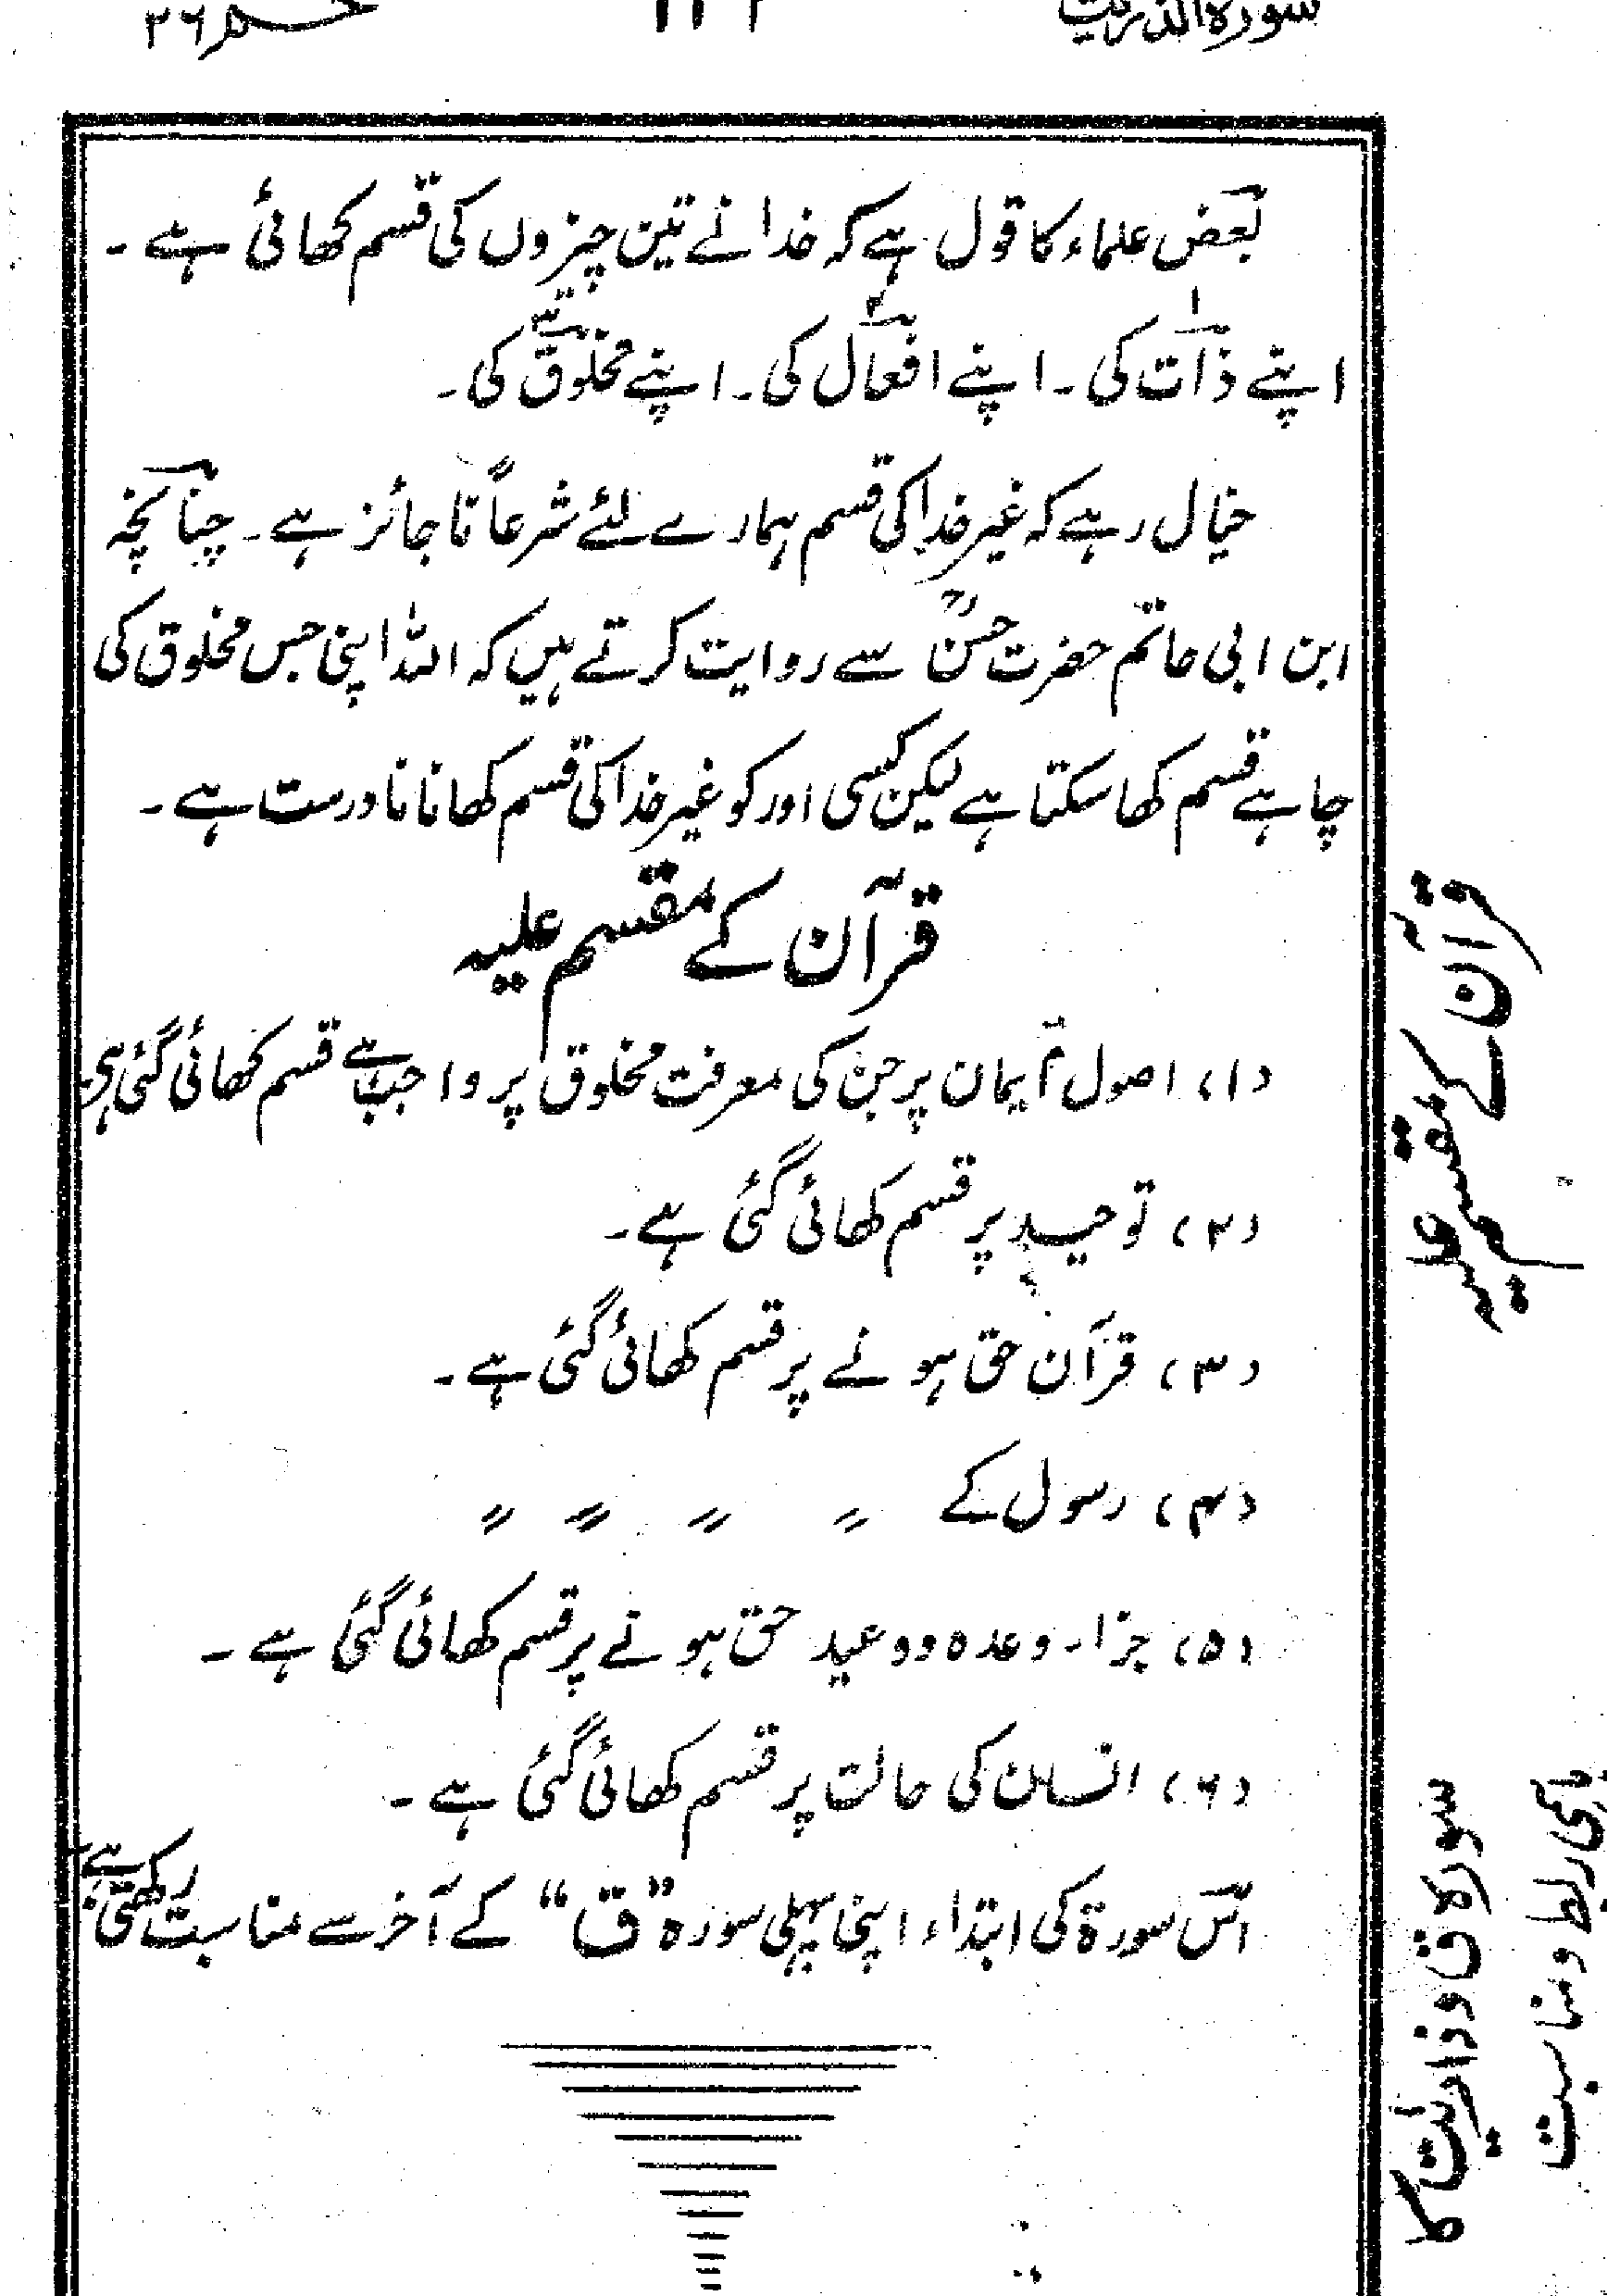 سورۃ الذریت
حٰم ۲۶
بعض علماء کا قول ہے کہ خدا نے تین چیزوں کی قسم کھائی ہے ۔
اپنے ذات کی ۔ اپنے افعال کی ۔ اپنے مخلوق کی ۔
خیال رہے کہ غیر خدا کی قسم ہمارے لئے شرعاً نا جائز ہے ۔ چنانچہ
ابن ابی حاتم حضرت حسنؒ سے روایت کرتے ہیں کہ اللہ اپنی جس مخلوق کی
چاہے قسم کھا سکتا ہے لیکن کسی اور کو غیر خدا کی قسم کھانا نا درست ہے ۔
قرآن کے مقسم علیہ
(۱) اصول ایمان پر جن کی معرفت مخلوق پر واجب ہے قسم کھائی گئی ہے
(۲) توحید پر قسم کھائی گئی ہے ۔
(۳) قرآن حق ہونے پر قسم کھائی گئی ہے ۔
(۴) رسول کے 〃 〃 〃 〃
(۵) جزا ۔ وعدہ و وعید حق ہونے پر قسم کھائی گئی ہے ۔
(۶) انسان کی حالت پر قسم کھائی گئی ہے ۔
اس سورۃ کی ابتداء اپنی پہلی سورہ "ق" کے آخر سے مناسبت رکھتی ہے
قرآن کے مقسم علیہ
سورہ ق و ذاریت کا
باہمی ربط و مناسبت